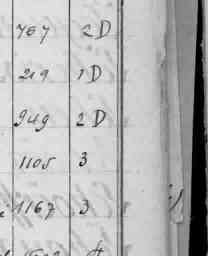 767 2D
219 1D
949 2D
1105 3
1167 3